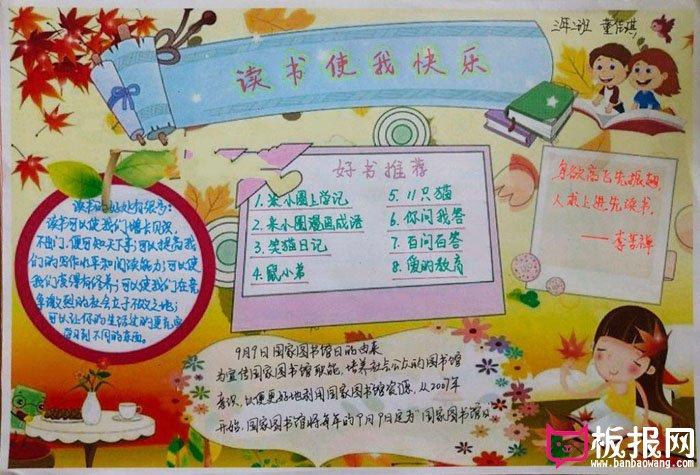 三年二班
读书使我快乐
读书的好处有很多:
读书可以使我们增长见识,
不出门,便可知天下事;可以提高我
们的写作水平和阅读能力;可以使
我们变得有修养;可以使我们在竞
争激烈的社会立于不败之地;
可以让你的生活过的更充实
学习到不同的东西。
好书推荐
1.米小圈上学记
2.米小圈漫画成语
3.笑猫日记
4.鼠小弟
5.11只猫
6.你问我答
7.百问百答
8.爱的教育
鸟欲高飞先振翅,
人求上进先读书.
——李苦禅
9月9日国家图书馆日的由来
为宣传国家图书馆职能,培养社会公众的图书馆
意识,以便更好地利用国家图书馆资源,从2007年
开始,国家图书馆将每年的9月9日定为"国家图书馆日
板报网
www.banbaowang.com